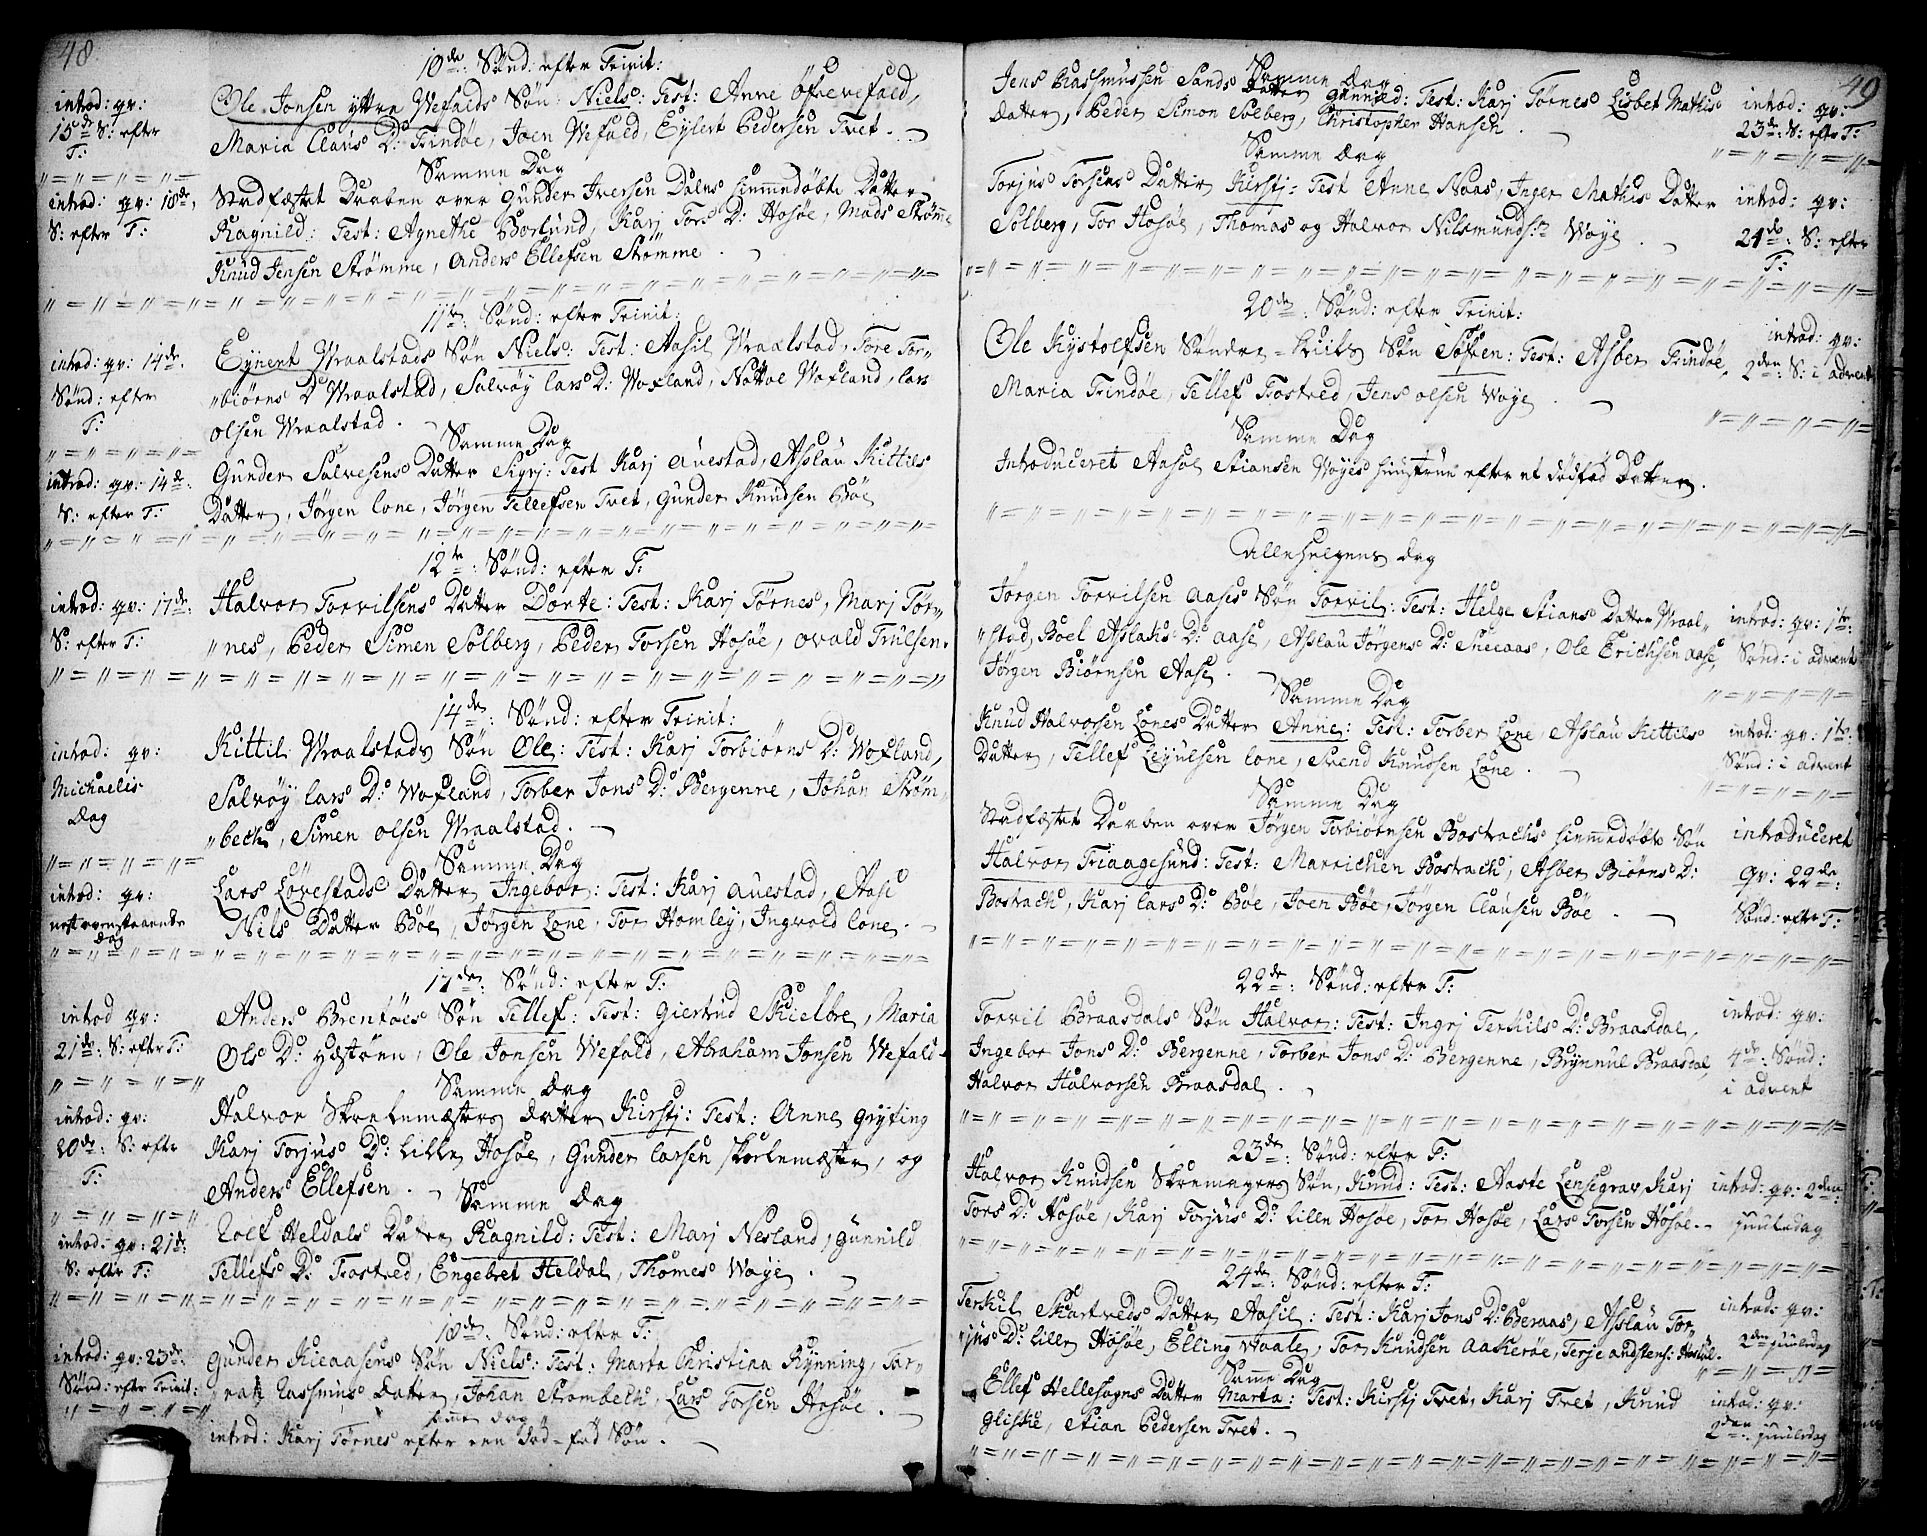 48
10de: Sønd: efter Trinit:
introd: qv:
15de S: efter
T:
Ole Jonsen yttre Wefalds Søn Niels: Test: Anne Øfrevefald,
Maria Claus D: Trindøe, Joen Wefald, Eylert Pedersen Tvet.
Samme Dag
introd: qv: 18de
S: efter T:
Stadfæstet Daaben over Gunder Iversen Dalens hiemmedøbte Datter
Ragnild: Test: Agnethe Borlund, Karj Tors D: Hosøe, Mads Strømme
Knud Jensen Strømme, Anders Ellefsen Strømme.
11te: Sønd: efter Trinit:
introd: qv: 14de
Sønd: efter
T:
Eynert Wraalstads Søn Niels: Test: Aasil Wraalstad, Tore Tor-
biørns D Wraalstad, Salvøy Lars D: Woxland, Nottol Woxland, Lars
olsen Wraalstad.
Samme Dag
introd: qv: 14de
S: efter T:
Gunder Salvesens Datter Sigrj: Test Karj Auestad, Asslau Kittils
Datter, Jørgen Lone, Jørgen Tellefsen Tvet, Gunder Knudsen Bøe
12te: Sønd: efter T:
introd: qv: 17de:
S: efter T:
Halvor Torvilsens Datter Dorte: Test: Karj Tørnes, Marj Tør-
nes, Peder Simen Solberg, Peder Torsen Hosøe, Ovald Trulsen.
14de: Sønd: efter Trinit:
introd: qv:
Michaelis
Dag
Kittil Wraalstads Søn Ole: Test: Karj Torbiørns D: Woxland,
Salvøy Lars D: Woxland, Torber Jons D: Bergenne, Johan Strøm-
bech, Simen olsen Wraalstad.
Samme Dag
introd: qv:
nestovenstaaende
dag
Lars Lovestads Datter Ingebor: Test: Karj Auestad, Aase
Nils Datter Bøe, Jørgen Lone, Tor Homley, Ingvald Lone.
17de: Sønd: efter T:
introd qv:
21de: S: efter T:
Anders Brentøes Søn Tellef: Test: Giertrud Skielbre, Maria
Ols D: , Ole Jonsen Wefald, Abraham Jonsen Wefald
Samme Dag
introd: qv:
20de: S: efter
T:
Halvor Skrelemæsters Datter Kirstj: Test: Anne Gryting
Karj Torjus D: Lille Hosøe, Gunder Larsen, og
Anders Ellefsen.
Samme Dag
introd: qv: 21de:
S: efter T:
Rolf Heldals Datter Ragnild: Test: Marj Nesland, Gunnild
Tellefs D: Trostved, Engebret Heldal, Thomes Woye.
18de: Sønd: efter T:
introd: qv: 23de:
Sønd: efter Trinit:
Gunder Kieaasens Søn Niels: Test: Marta Christina Rynning, Mar-
Rasmus Datter, Johan Strombech, Lars Torsen Hosøe.
samme dag
introd: Karj Tørnes efter een død-fød Søn.
49
Samme Dag
Jens Rassmussen Sands Datter Gunnild: Test: Karj Tørnes, Lisbet Mathis
Datter, Peder Simon Solberg, Christopher Hansen.
introd: qv:
23de: S: efter T:
Samme Dag
Torjus Torsens Datter Kirstj: Test Anne Naas, Inger Mathis Datter
Solberg, Tor Hosøe, Thomas og Halvor Nilsmunds: Woye.
introd: qv:
24de: S: efter
T:
20de: Sønd: efter Trinit:
Ole Kystolfsen Søndre - Søn Søfren: Test: Asber Trindøe,
Maria Trindøe, Tellef Trostved, Jens olsen Woye.
introd: qv:
2den: S: i advent
Samme Dag
Introduceret Aasol Stiansen Woyes hustrue efter et dødfød Datter.
Allehelgens dag
Jørgen Torvilsen Aases Søn Torvil: Test: Helge Stians Datter Wraal-
stad, Boel Aslaks D: Aase, Asslau Jørgens D: Sneeaas, Ole Erichsen Aase,
Jørgen Biørnsen Aase.
introd: qv: 1te:
Sønd: i advent
Samme Dag
Knud Halvorsen Lones Datter Anne: Test: Torber Lone, Asslau Kittils
Datter, Tellef Leyulsen Lone, Svend Knudsen Lone.
introd: qv: 1te:
Sønd: i advent
Samme Dag
Stadfæstet Daaben over Jørgen Torbiørnsen Bostrachs hiemmedøbte Søn
Halvor Friaagesund: Test: Marrichen Bostrach, Asber Biørns D:
Bostrach, Karj Lars D: Bøe, Joen Bøe, Jørgen Clausen Bøe.
introduceret
qv: 22de:
Sønd: efter T:
22de: Sønd: efter T:
Torvil Braasdals Søn Halvor: Test: Ingrj Terkils D: Braasdal,
Ingebor Jons D: Bergenne, Torber Jons D: Bergenne, Brynnul Braasdal,
Halvor Halvorsen Braasdal.
introd: qv:
4de: Sønd:
i advent
23de: Sønd: efter T:
Halvor Knudsen Skremagers Søn, Knud: Test: Aaste Lensegrav, Karj
Tors D: Hosøe, Karj Torjus D: Lille Hosøe, Tor Hosøe, Lars Torsen Hosøe.
introd: qv: 2den:
juuledag
24de: Sønd: efter T:
Terkil Skartveds Datter Aasil: Test: Karj Jons D: Beraas, Asslau Tor-
jus D: Lille Hosøe, Elling Waale, Tor Knudsen Aakerøe, Terje
introd: qv:
2den juuledag
Samme Dag
Ellef Hellesogns Datter Marta: Test: Kirstj Tvet, Karj Tvet, Knud
Gliske, Stian Pedersen Tvet.
introd: qv:
2den: juuledag